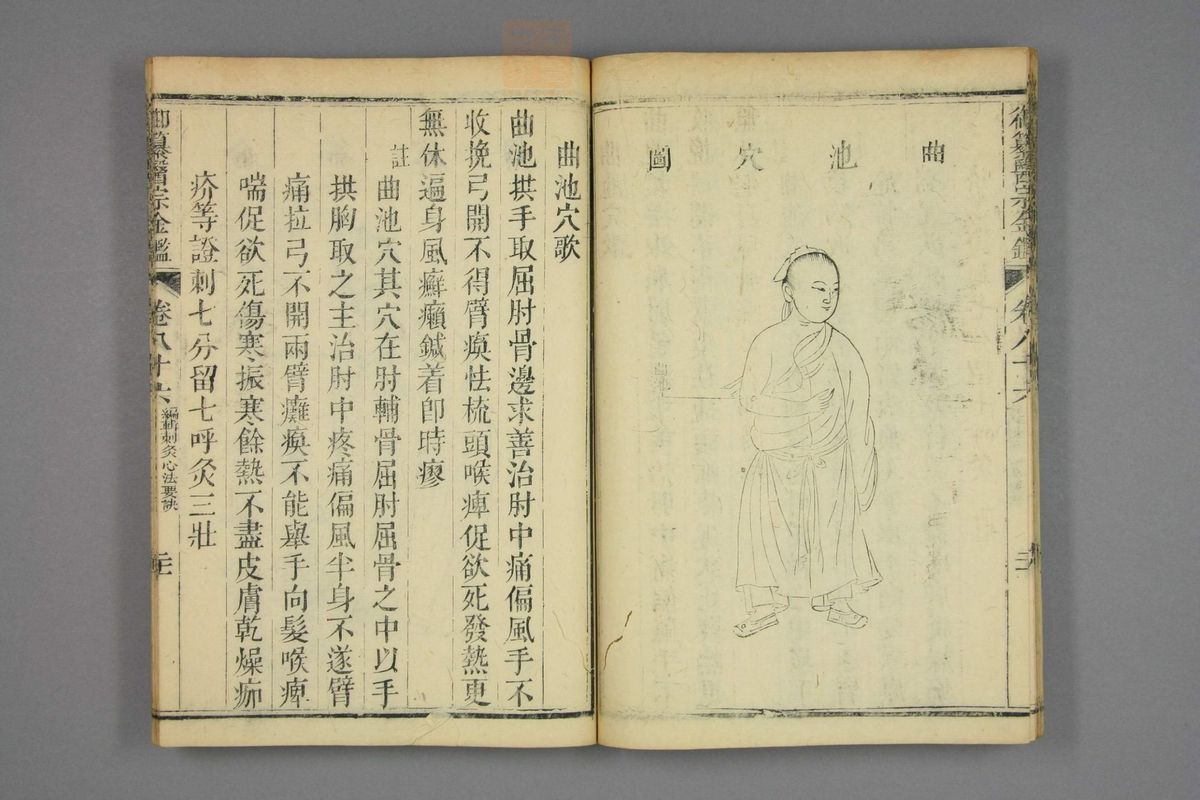 御纂醫宗金鑑 卷八十六
曲池穴圖
曲池穴歌
曲池拱手取屈肘骨邊求善治肘中痛偏風手不
收挽弓開不得臂瘓怯梳頭喉痺促欲死發熱更
無休遍身風癬癩鍼着卽時瘳
註曲池穴其穴在肘輔骨屈肘屈骨之中以手
拱胸取之主治肘中疼痛偏風半身不遂臂
痛拉弓不開兩臂癱瘓不能舉手向髮喉痺
喘促欲死傷寒振寒餘熱不盡皮膚乾燥痂
疥等證刺七分留七呼灸三壯
御纂醫宗金鑑 卷八十六 編輯刺灸心法要訣